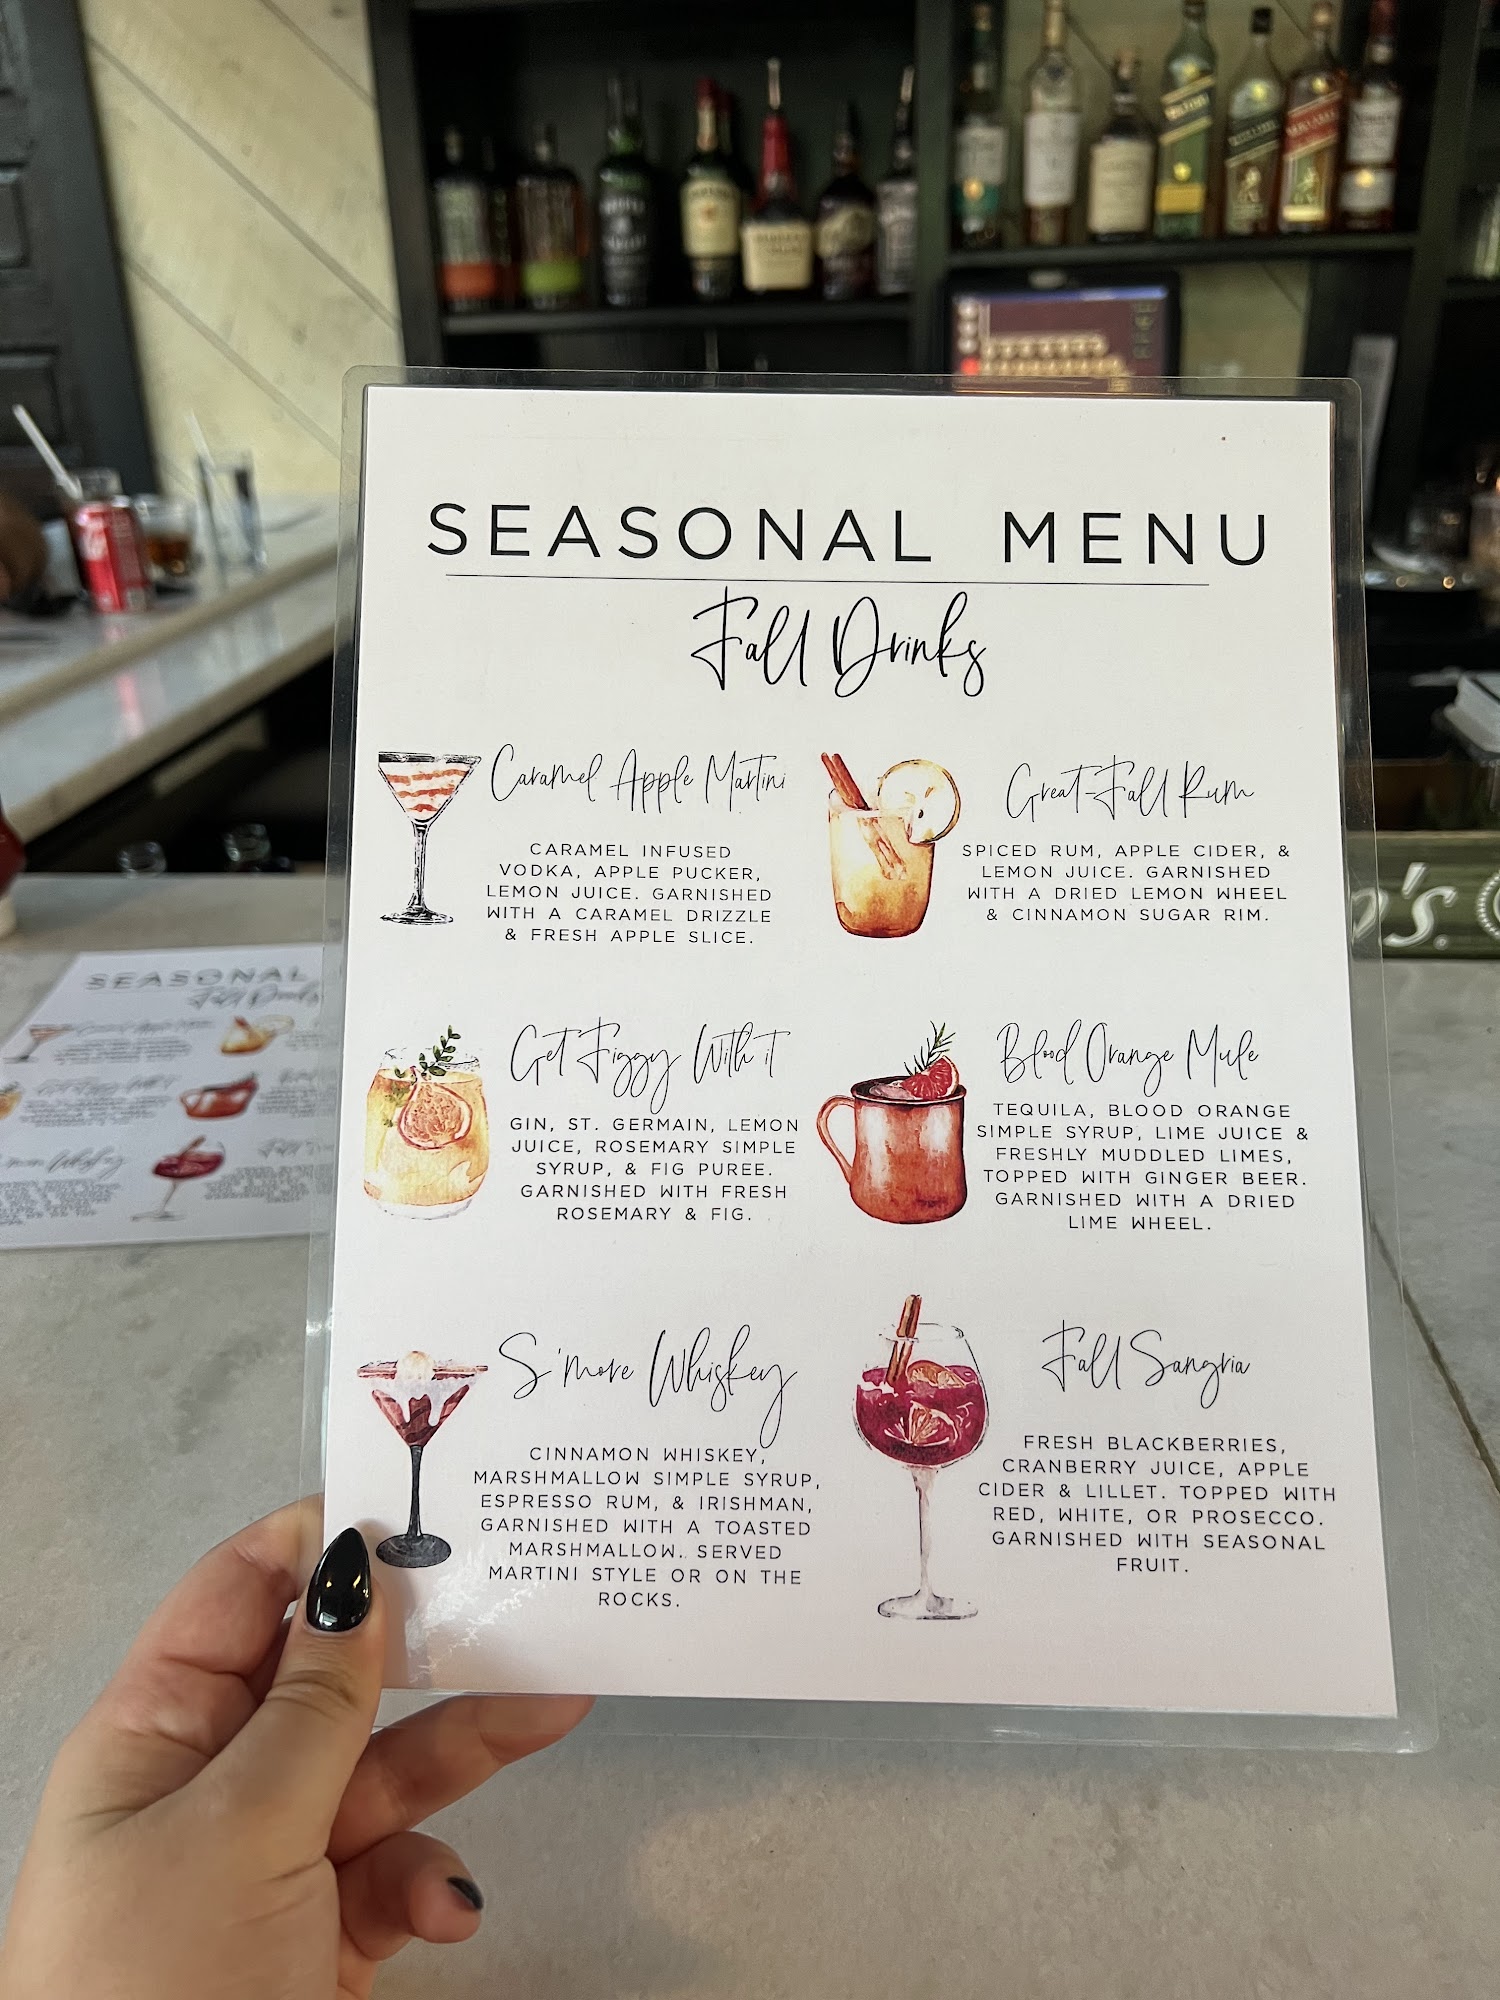 SEASONAL MENU
Fall Drinks
Caramel Apple Martini
CARAMEL INFUSED
VODKA, APPLE PUCKER,
LEMON JUICE. GARNISHED
WITH A CARAMEL DRIZZLE
& FRESH APPLE SLICE.
Great-Fall Rum
SPICED RUM, APPLE CIDER, &
LEMON JUICE. GARNISHED
WITH A DRIED LEMON WHEEL
& CINNAMON SUGAR RIM.
Get Figgy With it
GIN, ST. GERMAIN, LEMON
JUICE, ROSEMARY SIMPLE
SYRUP, & FIG PUREE.
GARNISHED WITH FRESH
ROSEMARY & FIG.
Blood Orange Mule
TEQUILA, BLOOD ORANGE
SIMPLE SYRUP, LIME JUICE &
FRESHLY MUDDLED LIMES,
TOPPED WITH GINGER BEER.
GARNISHED WITH A DRIED
LIME WHEEL.
S'more Whiskey
CINNAMON WHISKEY,
MARSHMALLOW SIMPLE SYRUP,
ESPRESSO RUM, & IRISHMAN,
GARNISHED WITH A TOASTED
MARSHMALLOW. SERVED
MARTINI STYLE OR ON THE
ROCKS.
Fall Sangria
FRESH BLACKBERRIES,
CRANBERRY JUICE, APPLE
CIDER & LILLET. TOPPED WITH
RED, WHITE, OR PROSECCO.
GARNISHED WITH SEASONAL
FRUIT.
SEASONAL
Fall Drinks